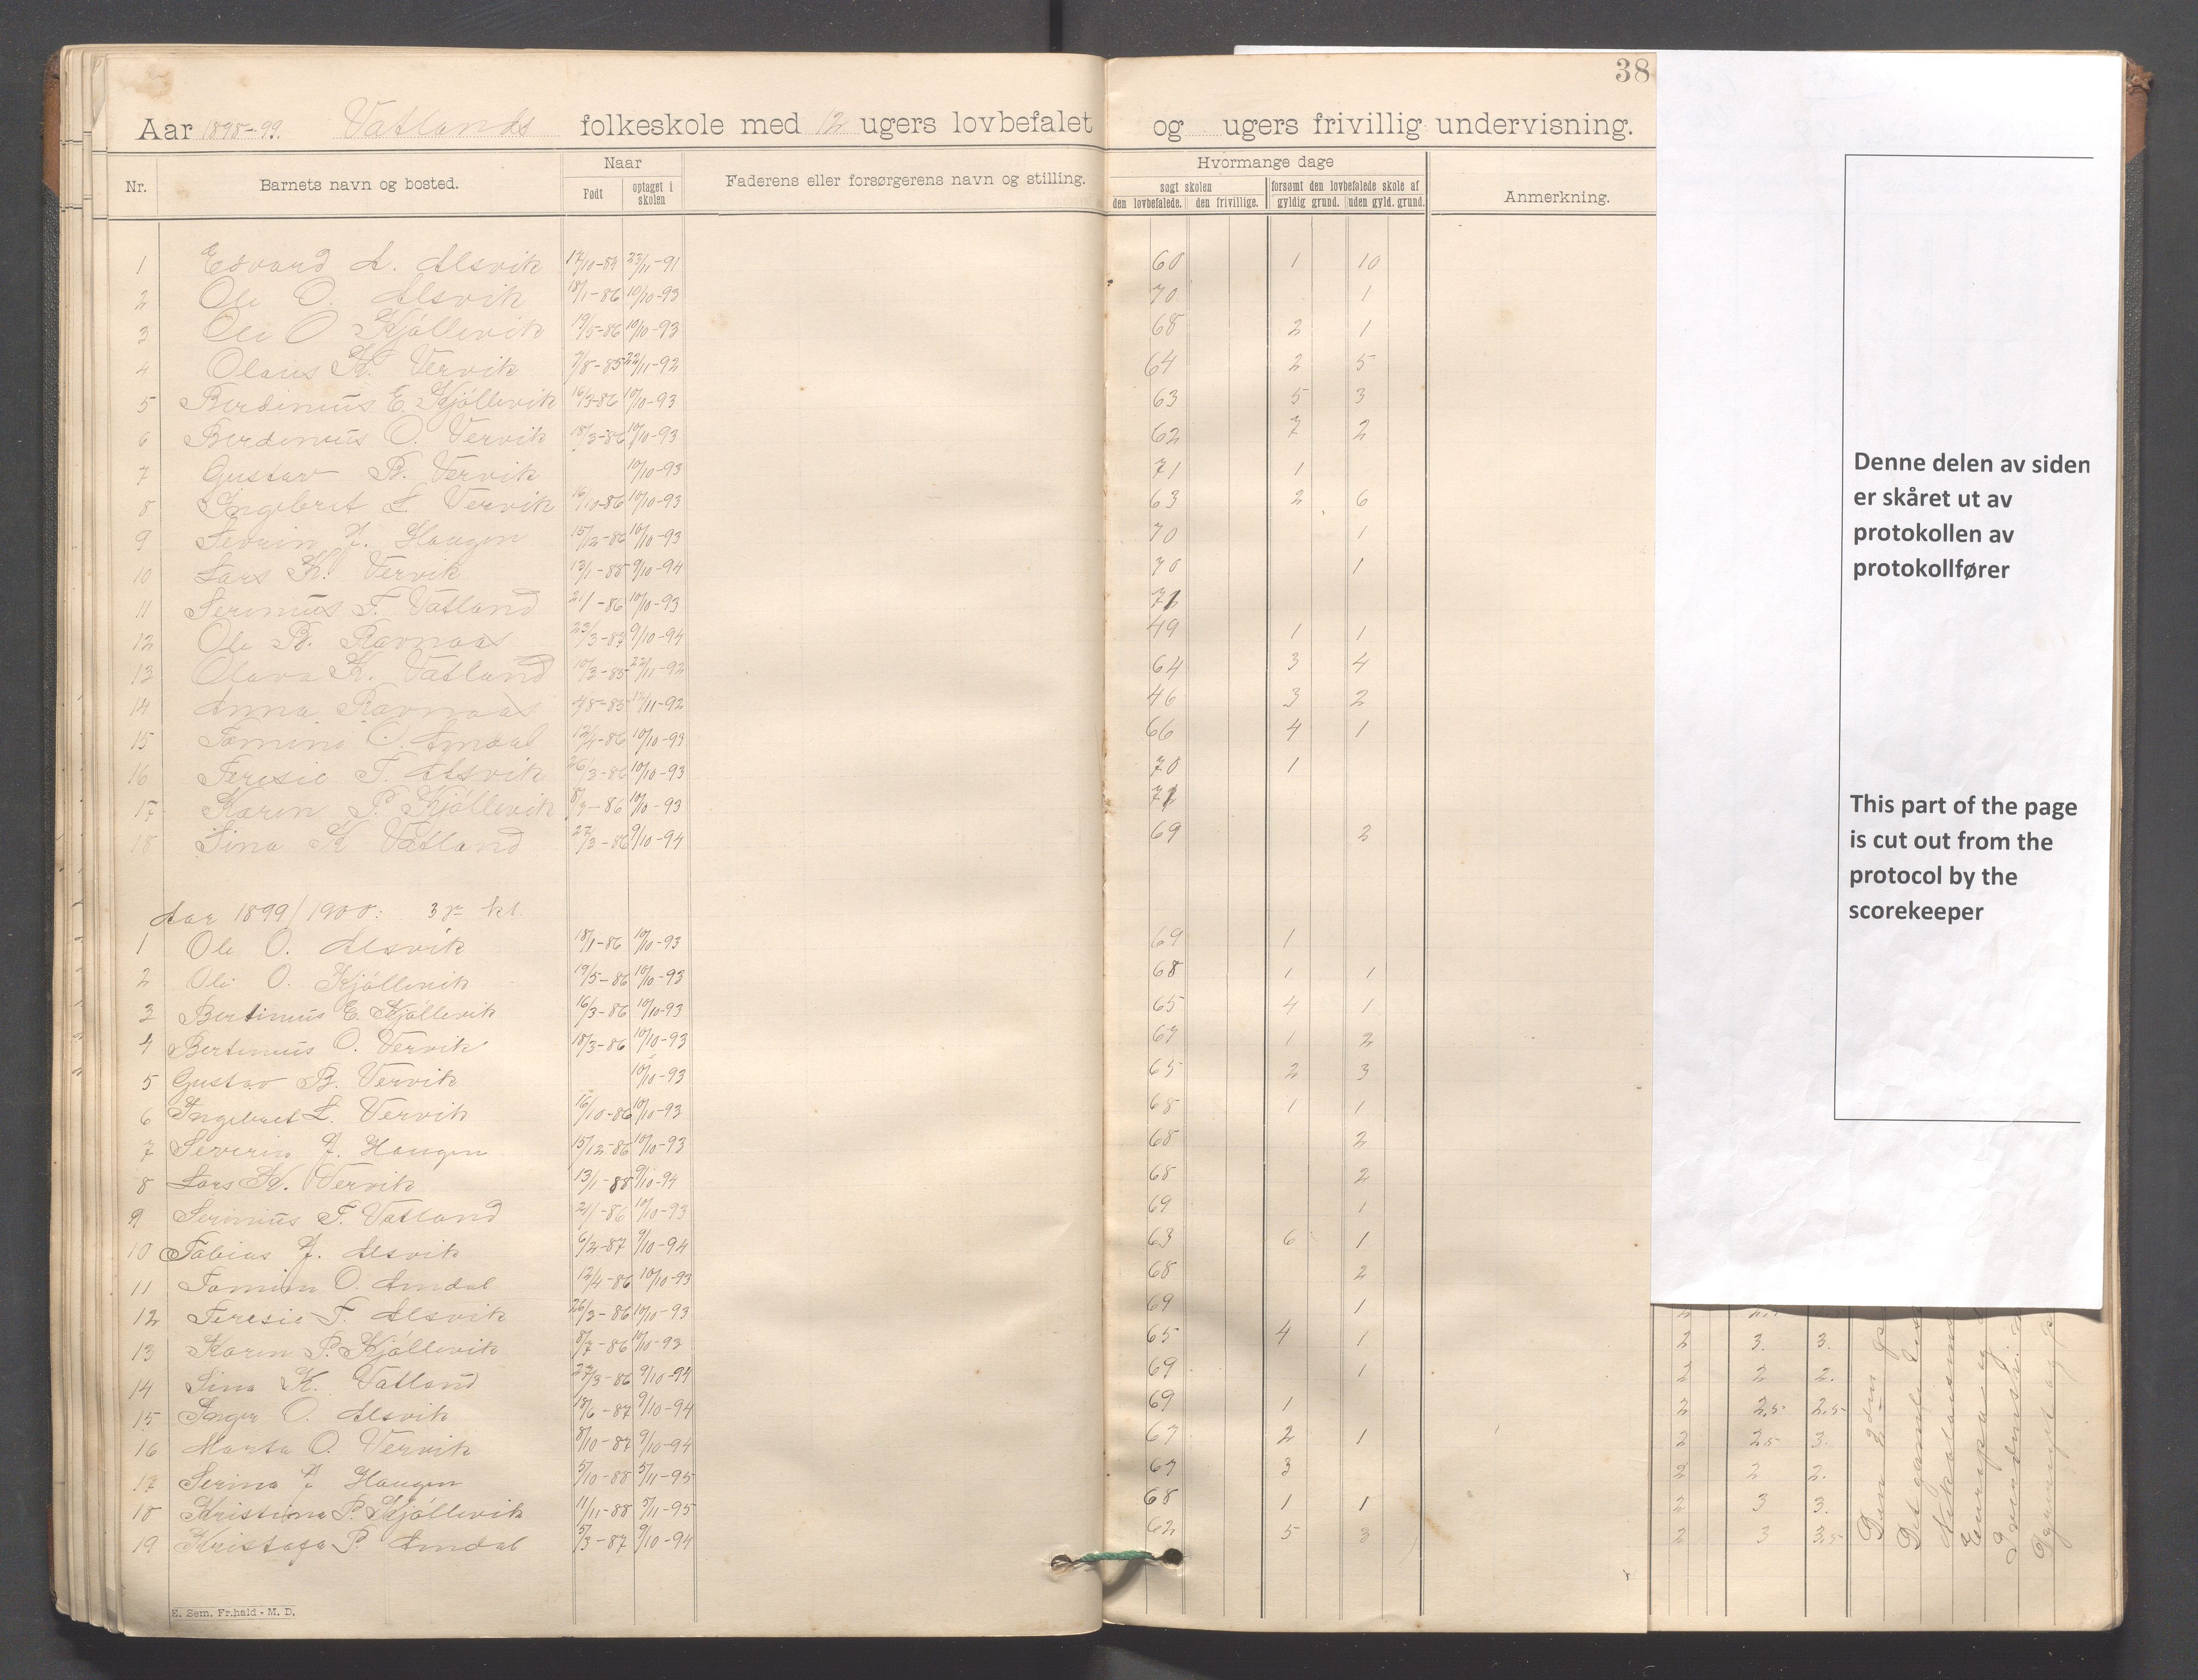 38
Aar 1898-99. Vatlands folkeskole med 12 ugers lovbefalet og ugers frivillig undervisning.
Nr. Barnets navn og bosted. Naar Født optaget i skolen Faderens eller forsørgerens navn og stilling. Hvormange dage søgt skolen den lovbefalede. den frivillige. forsømt den lovbefalede skole af gyldig grund. uden gyld. grund. Anmerkning.
1 Edvard A. Alsvik 17/10-84 23/11-91 60 1 10
2 Ole O. Alsvik 18/1-86 10/10-93 70 1
3 Ole O Kjøllevik 19/5-86 10/10-93 68 2 1
4 Olaus K. Vervik 7/8-85 22/11-92 64 2 5
5 Berdinius E. Kjøllevik 16/3-86 10/10-93 63 5 3
6 Berdinius O. Vervik 18/3-86 10/10-93 62 7 2
7 Gustav B. Vervik 10/10-93 71 1
8 Ingebret L. Vervik 16/10-86 10/10-93 63 2 6
9 Sevrin J. Haugen 15/12-86 10/10-93 70 1
10 Lars K. Vervik 13/1-88 9/10-94 70 1
11 Serinius T. Vatland 21/-86 10/10-93 72
12 Ole B. Ravnaas 23/3-87 9/10-94 49 1 1
13 Olava K. Vatland 10/3-85 22/11-92 64 3 4
14 Anna Ravnaas 4/8-85 /11-92 46 3 2
15 Tomine O. Amdal 12/4-86 10/10-93 66 4 1
16 Teresie T. Alsvik 26/3-86 10/10-93 70 1
17 Karen P. Kjøllevik 8/7-86 10/10-93 72
18 Sina K Vatland 27/3-86 9/10-94 69 2
Aar 1899/1900: 3die kl.
1 Ole O. Alsvik 18/1-86 10/10-93 69 1
2 Ole O. Kjøllevik 19/5-86 10/10-93 68 1 1
3 Bertinius E. Kjøllevik 16/3-86 10/10-93 65 4 1
4 Bertinius O. Vervik 18/3-86 10/10-93 67 1 2
5 Gustav B. Vervik 10/10-93 65 2 3
6 Ingebret L. Vervik 16/10-86 10/10-93 68 1 1
7 Severin J. Haugen 15/12-86 10/10-93 68 2
8 Lars K. Vervik 13/1-88 9/10-94 68 2
9 Serinius T. Vatland 21/-86 10/10-93 69 1
10 Tobias J. Alsvik 6/2-87 9/10-94 63 6 1
11 Tomine O. Amdal 12/4-86 10/10-93 68 2
12 Teresie T. Alsvik 26/3-86 10/10-93 69 1
13 Karen P. Kjøllevik 8/7-86 10/10-93 65 4 1
14 Sina K. Vatland 27/3-86 9/10-94 69 1
15 Inger O. Alsvik 18/6-87 9/10-94 69 1
16 Marta O. Vervik 8/10-87 9/10-94 67 2 1
17 Serina J Haugen 5/10-88 5/11-95 67 3
18 Kristina P. Kjøllevik 11/11-88 5/11-95 68 1 1
19 Kristofa P. Amdal 5/3-87 9/10-94 62 5 3
E. Sem, Fr.hald - M. D.
Denne delen av siden
er skåret ut av
protokollen av
protokollfører
This part of the page
is cut out from the
protocol by the
scorekeeper
2 3. 3.
2 2 2.
2 2,5 2,5
2 2,5 3.
2 2 2.
2 3 3.
2 3 3,5